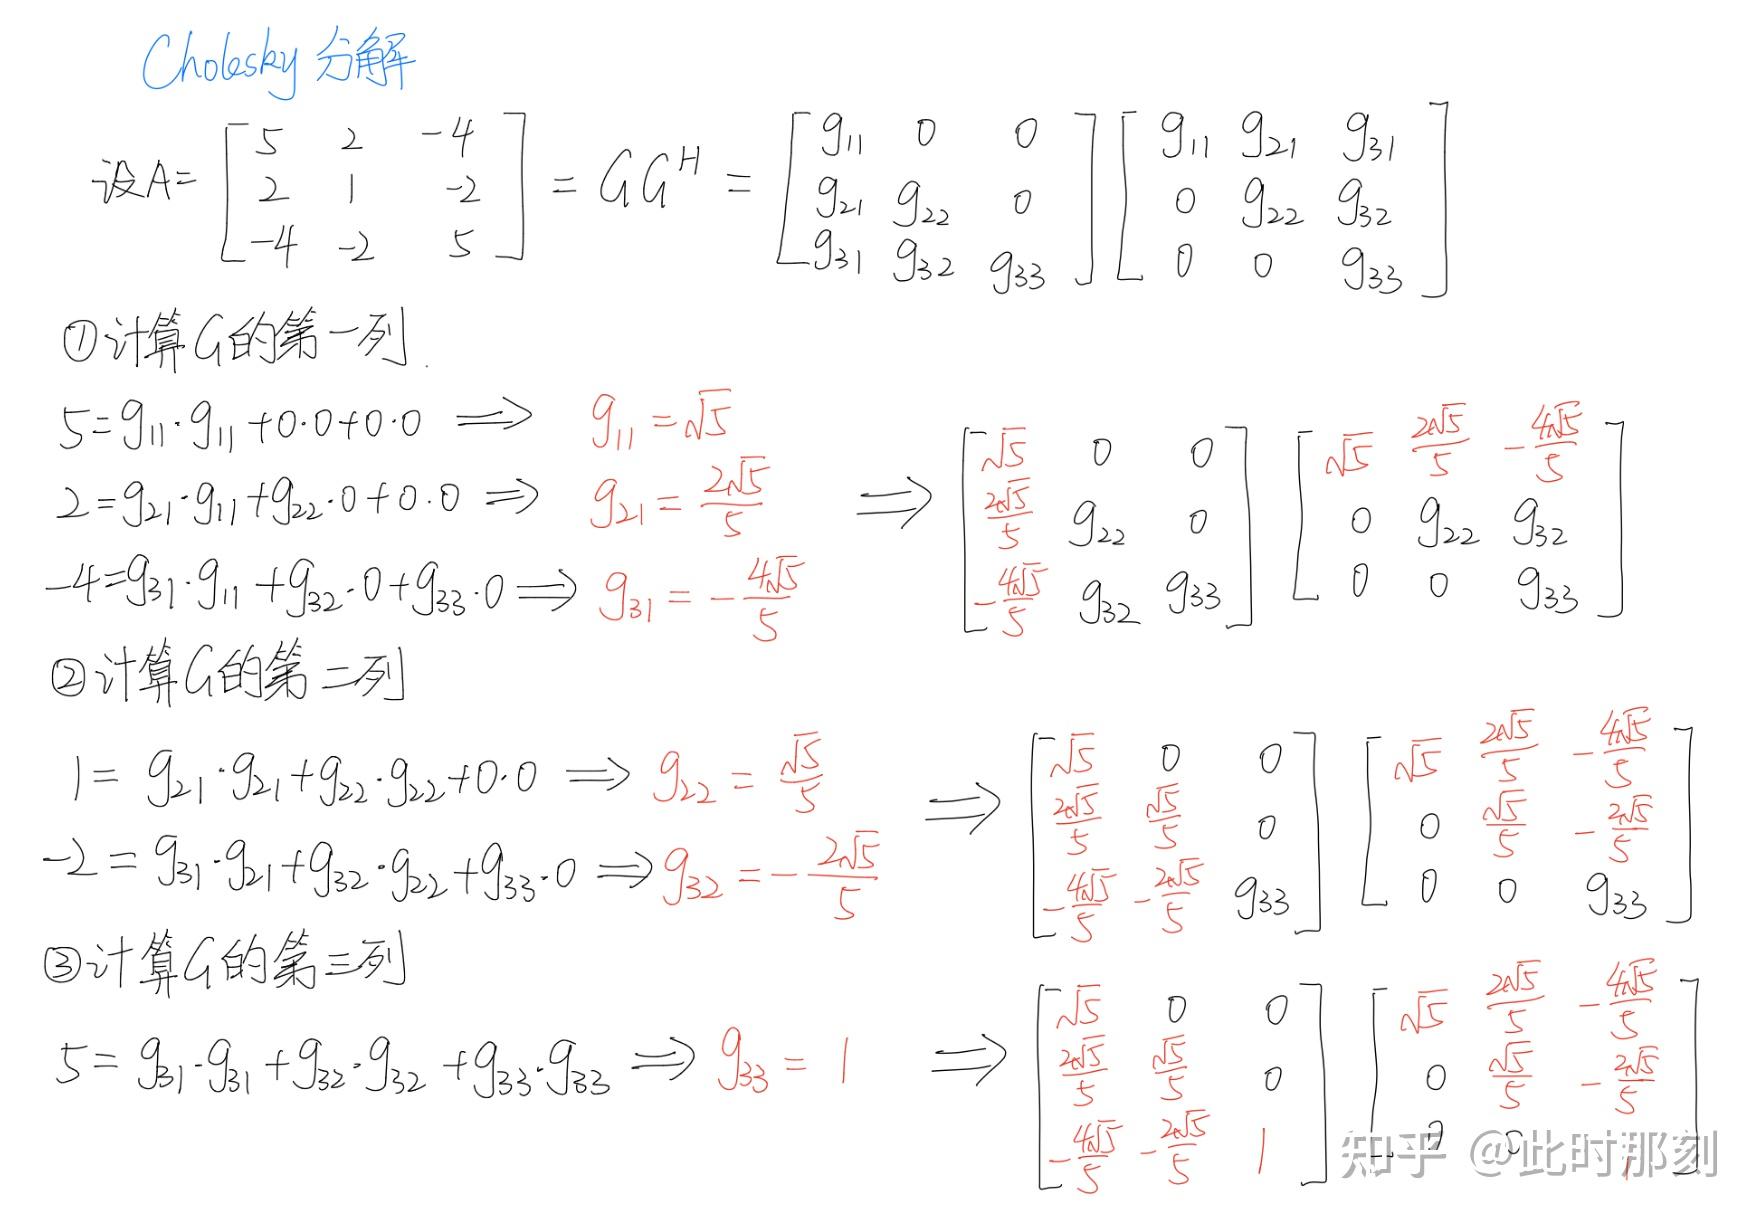 Cholesky 分解
设A= [5 2 -4; 2 1 -2; -4 -2 5] = GG^H = [g₁₁ 0 0; g₂₁ g₂₂ 0; g₃₁ g₃₂ g₃₃] [g₁₁ g₂₁ g₃₁; 0 g₂₂ g₃₂; 0 0 g₃₃]
①计算G的第一列
5=g₁₁·g₁₁+0·0+0·0 ⟹ g₁₁=√5
2=g₂₁·g₁₁+g₂₂·0+0·0 ⟹ g₂₁=2√5/5
-4=g₃₁·g₁₁+g₃₂·0+g₃₃·0 ⟹ g₃₁=-4√5/5
⟹ [√5 0 0; 2√5/5 g₂₂ 0; -4√5/5 g₃₂ g₃₃] [√5 2√5/5 -4√5/5; 0 g₂₂ g₃₂; 0 0 g₃₃]
②计算G的第二列
1=g₂₁·g₂₁+g₂₂·g₂₂+0·0 ⟹ g₂₂=√5/5
-2=g₃₁·g₂₁+g₃₂·g₂₂+g₃₃·0 ⟹ g₃₂=-2√5/5
⟹ [√5 0 0; 2√5/5 √5/5 0; -4√5/5 -2√5/5 g₃₃] [√5 2√5/5 -4√5/5; 0 √5/5 -2√5/5; 0 0 g₃₃]
③计算G的第三列
5=g₃₁·g₃₁+g₃₂·g₃₂+g₃₃·g₃₃ ⟹ g₃₃=1
⟹ [√5 0 0; 2√5/5 √5/5 0; -4√5/5 -2√5/5 1] [√5 2√5/5 -4√5/5; 0 √5/5 -2√5/5; 0 0 1]
知乎 @此时那刻